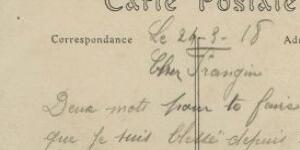 Carte Postale
Correspondance Le 24-9-18 Ad
Cher Frangin
Deux mots pour te faire
que je suis blessé depuis